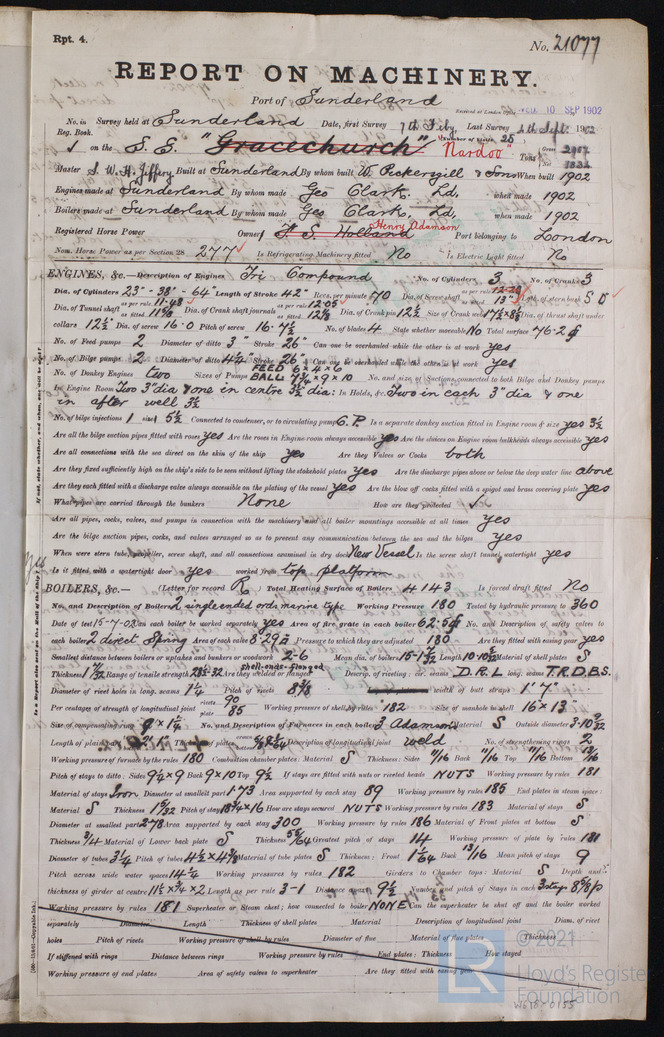 Rpt. 4.
No. 21077
REPORT ON MACHINERY.
Port of Sunderland
Received at London Office WED. 10 SEP 1902
No. in Survey held at Sunderland Date, first Survey 7th Feby Last Survey 4th Sept. 1902
Reg. Book.
(Number of Visits 25)
on the S.S. "Gracechurch" "Nardoo" Tons Gross 2987 Net
Master S. W. H. Jiffery Built at Sunderland By whom built W. Pickersgill & Sons When built 1902
Engines made at Sunderland By whom made Geo Clark, Ld, when made 1902
Boilers made at Sunderland By whom made Geo Clark, Ld, when made 1902
Registered Horse Power Owners S. Holland Henry Adamson Port belonging to London
Nom. Horse Power as per Section 28 277 Is Refrigerating Machinery fitted No Is Electric Light fitted No
ENGINES, &c.—Description of Engines Tri Compound No. of Cylinders 3 No. of Cranks 3
Dia. of Cylinders 23" - 38" - 64" Length of Stroke 42" Revs. per minute 70 Dia. of Screw shaft as per rule 12.20 as fitted 13" Lgth. of stern bush 5 0
Dia. of Tunnel shaft as per rule 11.43 as fitted 11 5/8 Dia. of Crank shaft journals as per rule 12.03 as fitted 12 1/8 Dia. of Crank pin 12 1/2 Size of Crank webs 17 1/2 x 8 Dia. of thrust shaft under
collars 12 1/2 Dia. of screw 16.0 Pitch of screw 16.7 1/2 No. of blades 4 State whether moveable No Total surface 76.2
No. of Feed pumps 2 Diameter of ditto 3" Stroke 26" Can one be overhauled while the other is at work yes
No. of Bilge pumps 2 Diameter of ditto 4 1/4" Stroke 26" Can one be overhauled while the other is at work yes
No. of Donkey Engines two Sizes of Pumps FEED 6 x 4 x 6 BALL 7 3/4 x 9 x 10 No. and size of Suctions connected to both Bilge and Donkey pumps
In Engine Room Two 3" dia & one in centre 3 1/2 dia: In Holds, &c. Two in each 3" dia & one
in after well 3 1/2
No. of bilge injections 1 sizes 5 1/2 Connected to condenser, or to circulating pump C.P. Is a separate donkey suction fitted in Engine room & size yes 3 1/2
Are all the bilge suction pipes fitted with roses yes Are the roses in Engine room always accessible yes Are the sluices on Engine room bulkheads always accessible yes
Are all connections with the sea direct on the skin of the ship yes Are they Valves or Cocks both
Are they fixed sufficiently high on the ship's side to be seen without lifting the stokehold plates yes Are the discharge pipes above or below the deep water line above
Are they each fitted with a discharge valve always accessible on the plating of the vessel yes Are the blow off cocks fitted with a spigot and brass covering plate yes
What pipes are carried through the bunkers None How are they protected ✓
Are all pipes, cocks, valves, and pumps in connection with the machinery and all boiler mountings accessible at all times yes
Are the bilge suction pipes, cocks, and valves arranged so as to prevent any communication between the sea and the bilges yes
When were stern tube, propeller, screw shaft, and all connections examined in dry dock New Vessel Is the screw shaft tunnel watertight yes
Is it fitted with a watertight door yes worked from top platform
BOILERS, &c.— (Letter for record R) Total Heating Surface of Boilers 4143 Is forced draft fitted No
No. and Description of Boilers 2 single ended ord: marine type Working Pressure 180 Tested by hydraulic pressure to 360
Date of test 15-7-02 Can each boiler be worked separately yes Area of fire grate in each boiler 62.5 No. and Description of safety valves to
each boiler 2 direct Spring Area of each valve 8.29 Pressure to which they are adjusted 180 Are they fitted with easing gear yes
Smallest distance between boilers or uptakes and bunkers or woodwork 2-6 Mean dia. of boilers 15-1 7/32 Length 10-10 Material of shell plates S
Thickness 1 7/32 Range of tensile strength 28 1/2-32 Are they welded or flanged shell-ends-flanged Descrip. of riveting: cir. seams D.R.L long. seams T.R.D.B.S.
Diameter of rivet holes in long. seams 1 1/4 Pitch of rivets 8 3/8 width of butt straps 1' 7"
Per centages of strength of longitudinal joint rivets 90 plate 85 Working pressure of shell by rules 182 Size of manhole in shell 16 x 13
Size of compensating ring x 1 1/4 No. and Description of Furnaces in each boiler 3 Adamson Material S Outside diameter 3-10 9/32
Length of plain part Description of longitudinal joint weld No. of strengthening rings 2
Working pressure of furnace by the rules 180 Combustion chamber plates: Material S Thickness: Sides 11/16 Back 11/16 Top 11/16 Bottom 13/16
Pitch of stays to ditto: Sides 9 1/4 x 9 Back 9 x 10 Top 9 1/2 If stays are fitted with nuts or riveted heads NUTS Working pressure by rules 181
Material of stays Iron Diameter at smallest part 1.73 Area supported by each stay 89 Working pressure by rules 185 End plates in steam space:
Material S Thickness 1 5/32 Pitch of stays 18 3/4 x 16 How are stays secured NUTS Working pressure by rules 183 Material of stays S
Diameter at smallest part 2.78 Area supported by each stay 300 Working pressure by rules 186 Material of Front plates at bottom S
Thickness 3/4 Material of Lower back plate S Thickness 55/64 Greatest pitch of stays 14 Working pressure of plate by rules 181
Diameter of tubes 3 1/4 Pitch of tubes 4 1/2 x 4 3/8 Material of tube plates S Thickness: Front 1 1/64 Back 13/16 Mean pitch of stays 9
Pitch across wide water spaces 14 1/4 Working pressures by rules 182 Girders to Chamber tops: Material S Depth and
thickness of girder at centre 11 1/2 x 3/4 x 2 Length as per rule 3-1 Distance apart 9 1/2 Number and pitch of Stays in each 3 stays 8 7/8 P
Working pressure by rules 181 Superheater or Steam chest; how connected to boiler NONE Can the superheater be shut off and the boiler worked
separately Diameter Length Thickness of shell plates Material Description of longitudinal joint Diam. of rivet
holes Pitch of rivets Working pressure of shell by rules Diameter of flue Material of flue plates Thickness
If stiffened with rings Distance between rings Working pressure by rules End plates: Thickness How stayed
Working pressure of end plates Area of safety valves to superheater Are they fitted with easing gear
© 2021
Lloyd's Register
Foundation
W678-0155